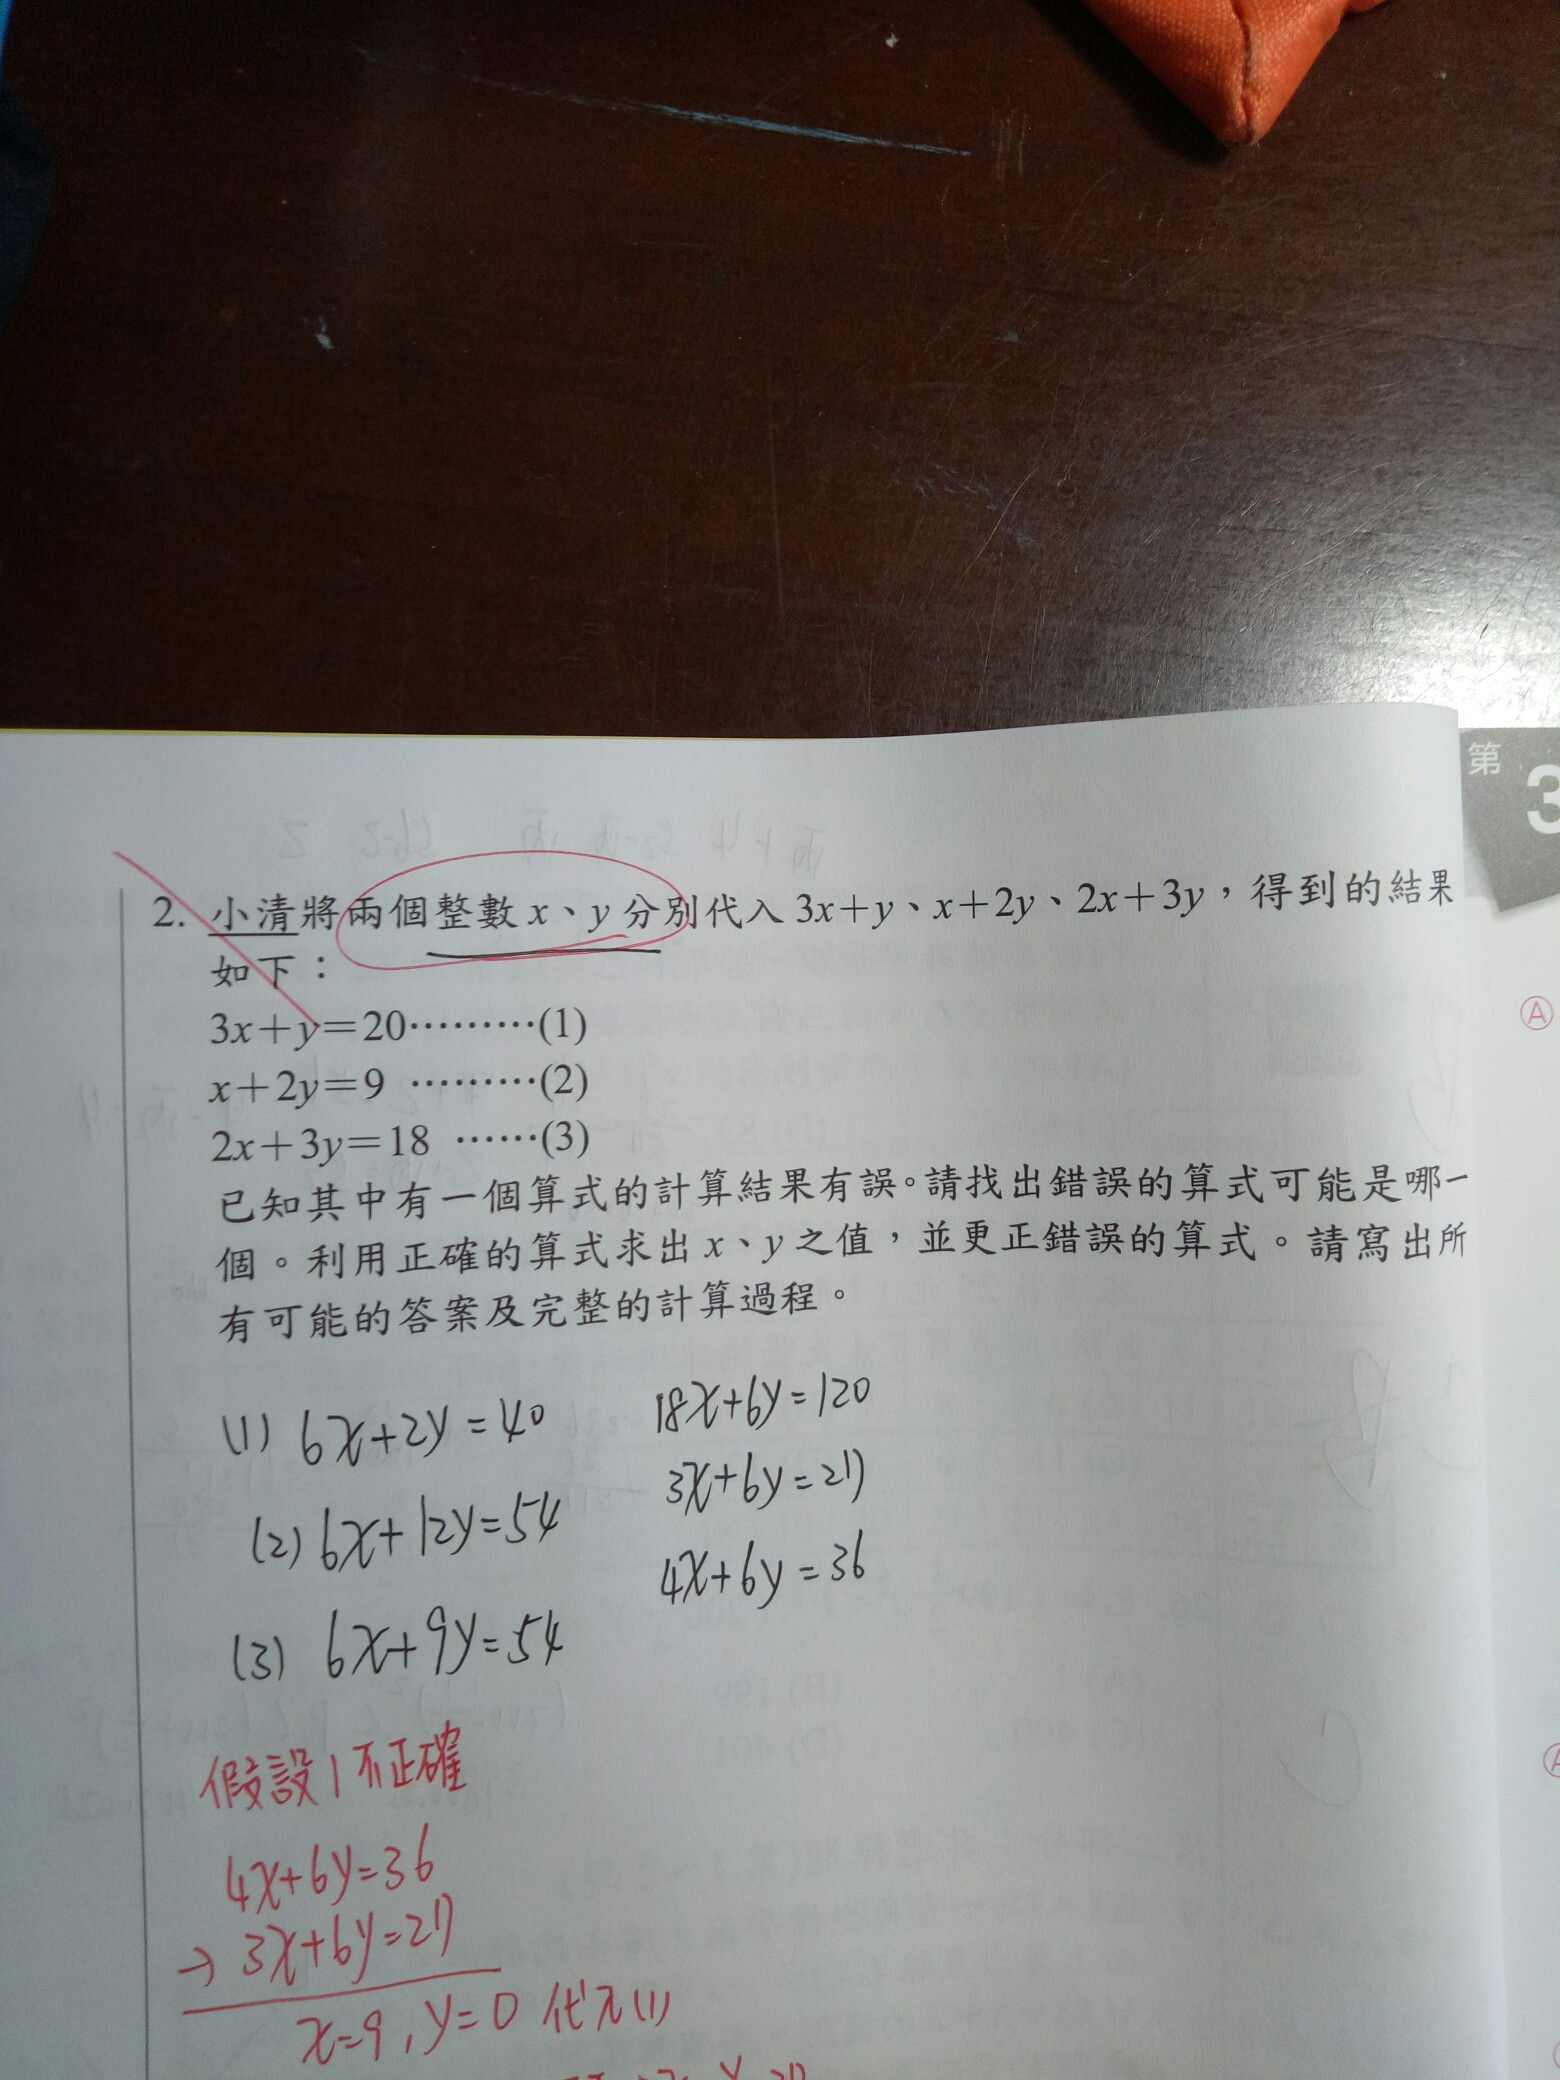 第 3
2. 小清將兩個整數 x、y 分別代入 3x+y、x+2y、2x+3y，得到的結果
如下：
3x+y=20………(1)
x+2y=9 ………(2)
2x+3y=18 ……(3)
已知其中有一個算式的計算結果有誤。請找出錯誤的算式可能是哪一
個。利用正確的算式求出 x、y 之值，並更正錯誤的算式。請寫出所
有可能的答案及完整的計算過程。
(1) 6x+2y=40 18x+6y=120
(2) 6x+12y=54 3x+6y=27
(3) 6x+9y=54 4x+6y=36
假設1不正確
4x+6y=36
→ 3x+6y=27
x=9, y=0 代入(1)
A
A